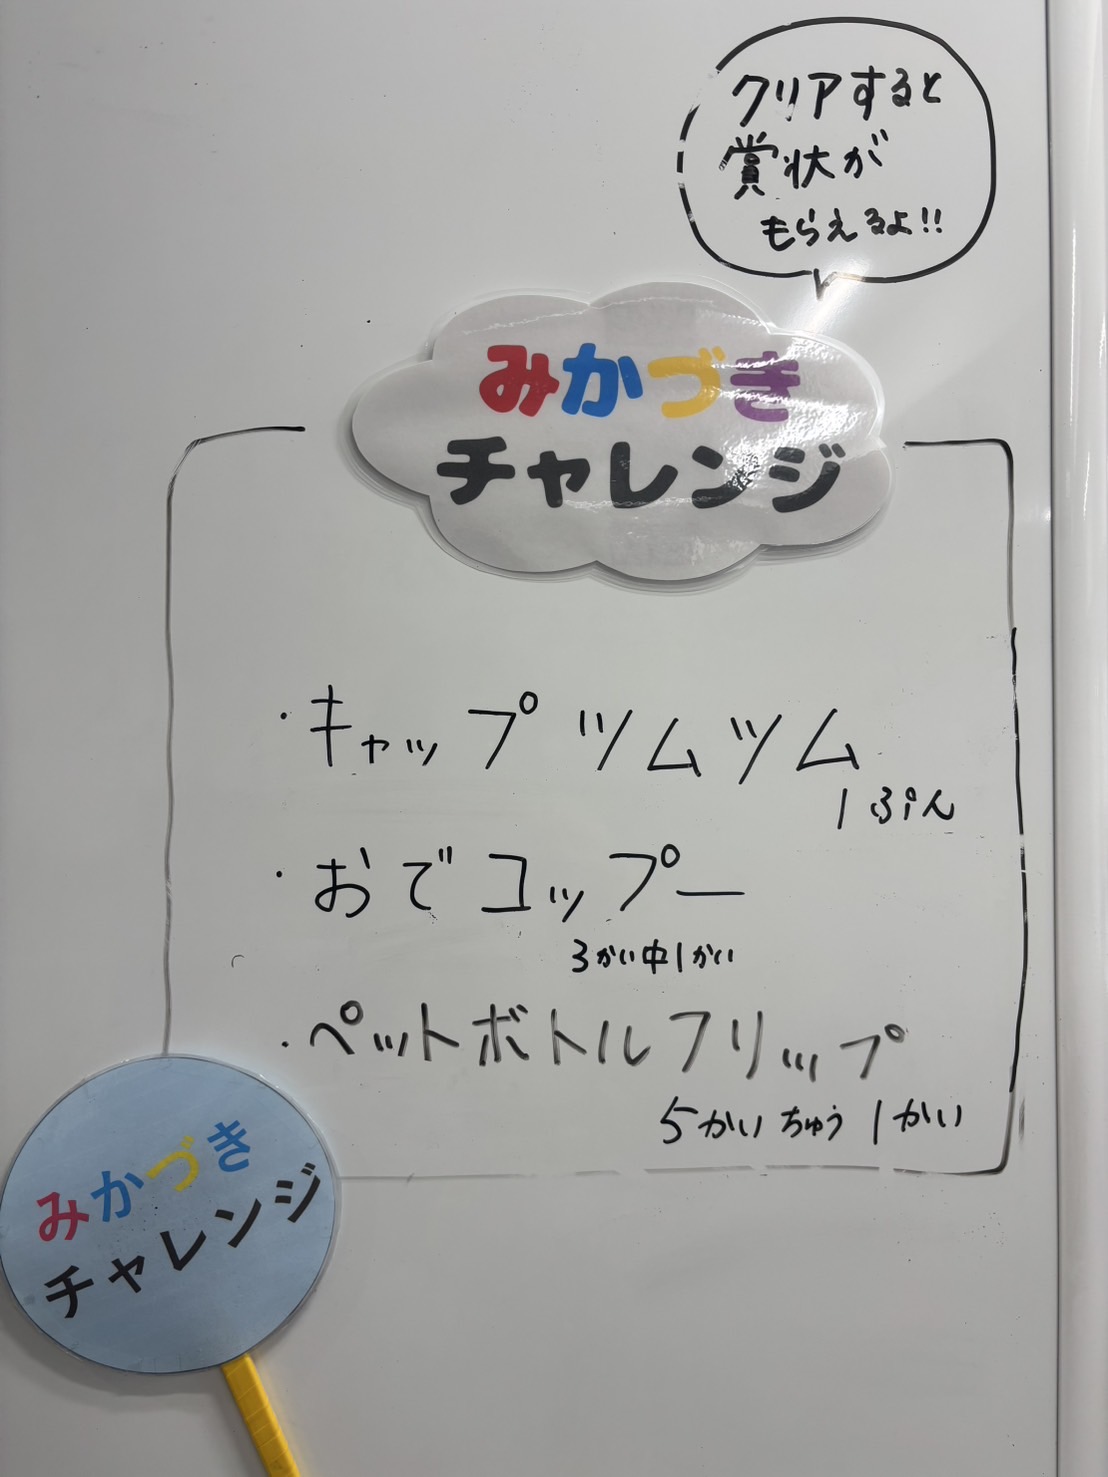 クリアすると
賞状が
もらえるよ!!
みかづき
チャレンジ
・キャップツムツム
1ぷん
・おでコップー
3かい中1かい
・ペットボトルフリップ
5かいちゅう1かい
みかづき
チャレンジ